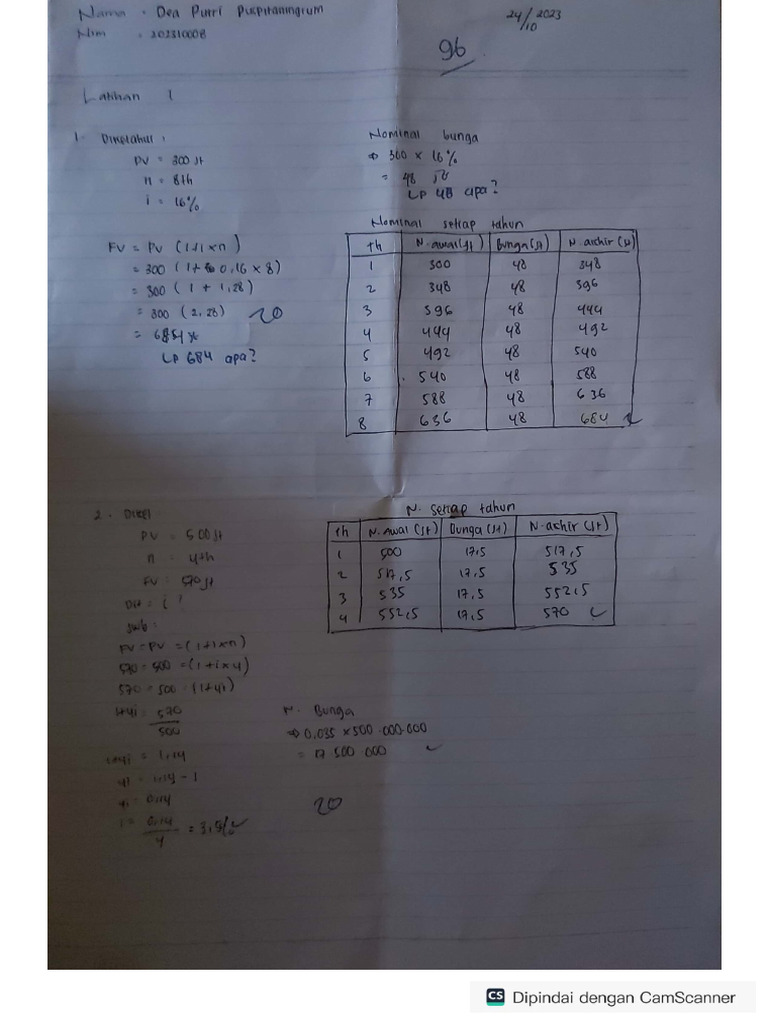 Nama : Dea Putri Puspitaningrum
Nim : 202310008
24/10 2023
96
Latihan 1
1. Diketahui :
PV = 300 Jt
n = 8th
i = 16%
FV = PV (1+i×n)
= 300 (1+ 0,16 × 8)
= 300 ( 1 + 1,28)
= 300 (2,28)
= 684
↳ 684 apa?
20
Nominal bunga
⇒ 300 × 16%
= 48
↳ 48 apa?
Nominal setiap tahun
Th N.awal(jt) Bunga(jt) N.akhir(jt)
1 300 48 348
2 348 48 396
3 396 48 444
4 444 48 492
5 492 48 540
6 540 48 588
7 588 48 636
8 636 48 684
2. Diket
PV = 500 Jt
n = 4th
FV : 570 Jt
Dit = i ?
Jwb :
FV = PV = (1+i×n)
570 = 500 = (1+i×4)
570 = 500 (1+4i)
1+4i = 570
500
1+4i = 1,14
4i = 1,14 - 1
4i = 0,14
i = 0,14
4
= 3,5%
N. setiap tahun
Th N.Awal (Jt) Bunga(Jt) N.akhir (Jt)
1 500 17,5 517,5
2 517,5 17,5 535
3 535 17,5 552,5
4 552,5 17,5 570
N. Bunga
⇒ 0,035 × 500.000.000
= 17.500.000
20
CS Dipindai dengan CamScanner